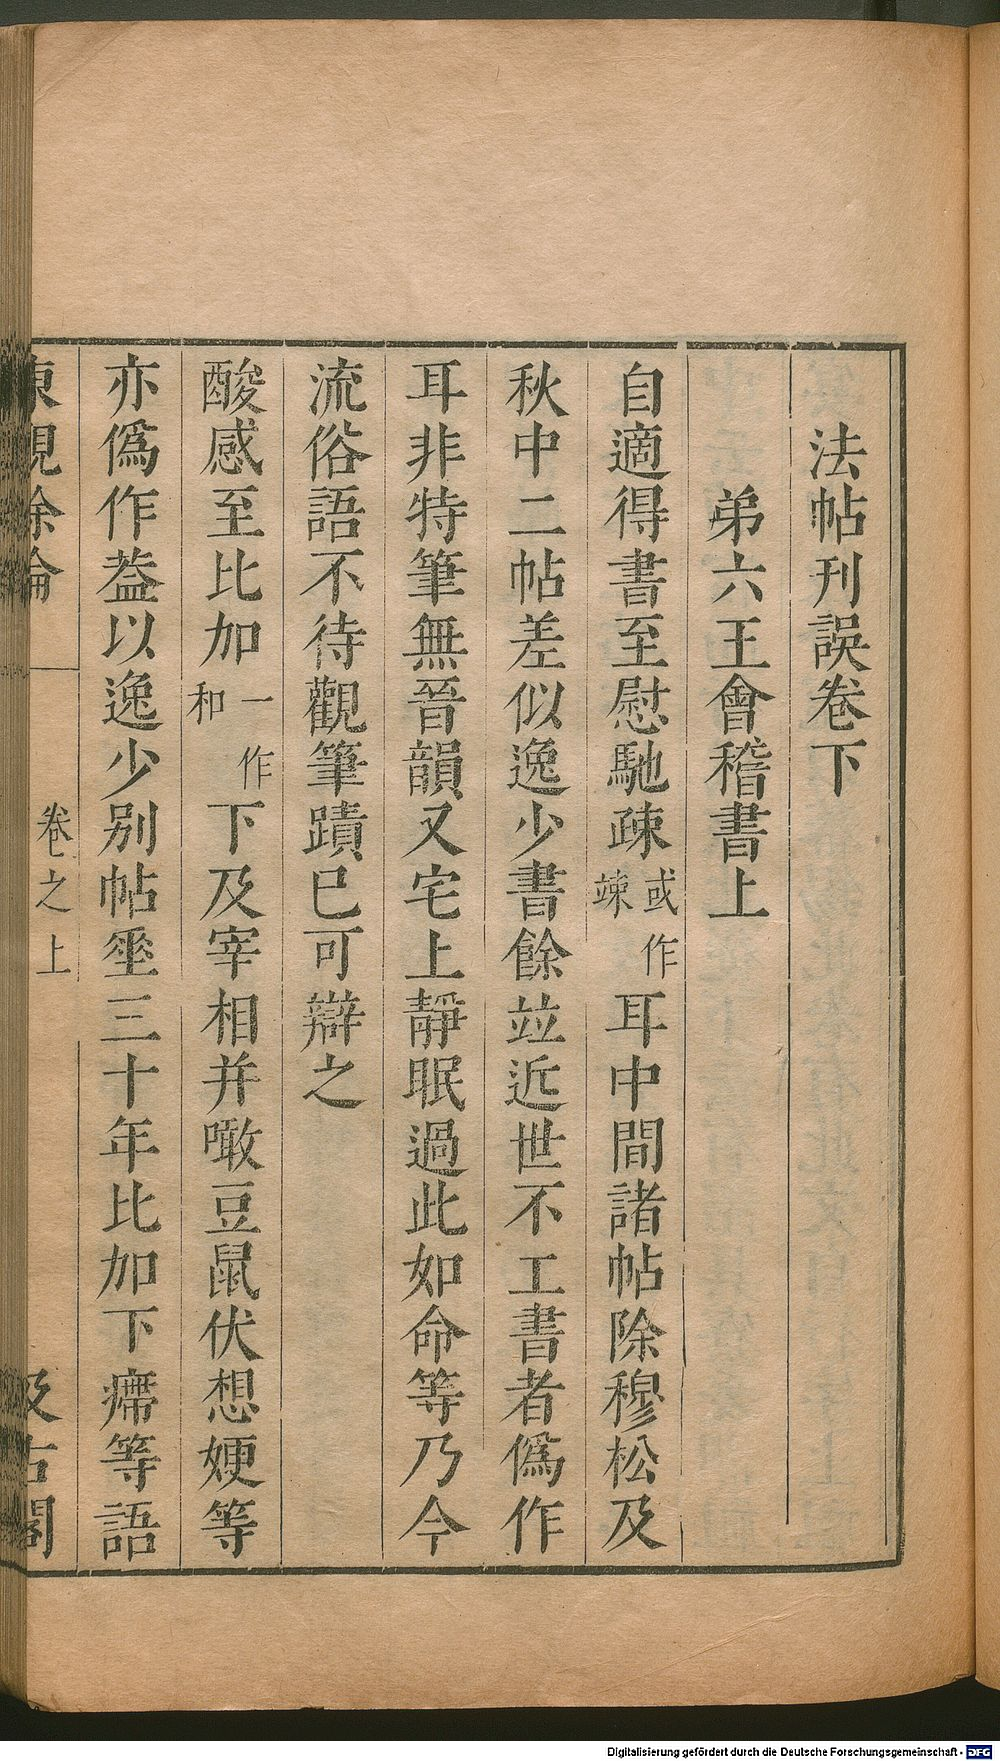 法帖刋誤卷下
弟六王會稽書上
自適得書至慰馳疎或作竦耳中間諸帖除穆松及
秋中二帖差似逸少書餘竝近世不工書者僞作
耳非特筆無晉韻又宅上靜眠過此如命等乃今
流俗語不待觀筆蹟已可辯之
酸感至比加一作和下及宰相并噉豆鼠伏想㛹等
亦僞作葢以逸少別帖㘴三十年比加下㿃等語
東觀餘論
卷之上
汲古閣
Digitalisierung gefördert durch die Deutsche Forschungsgemeinschaft - DFG